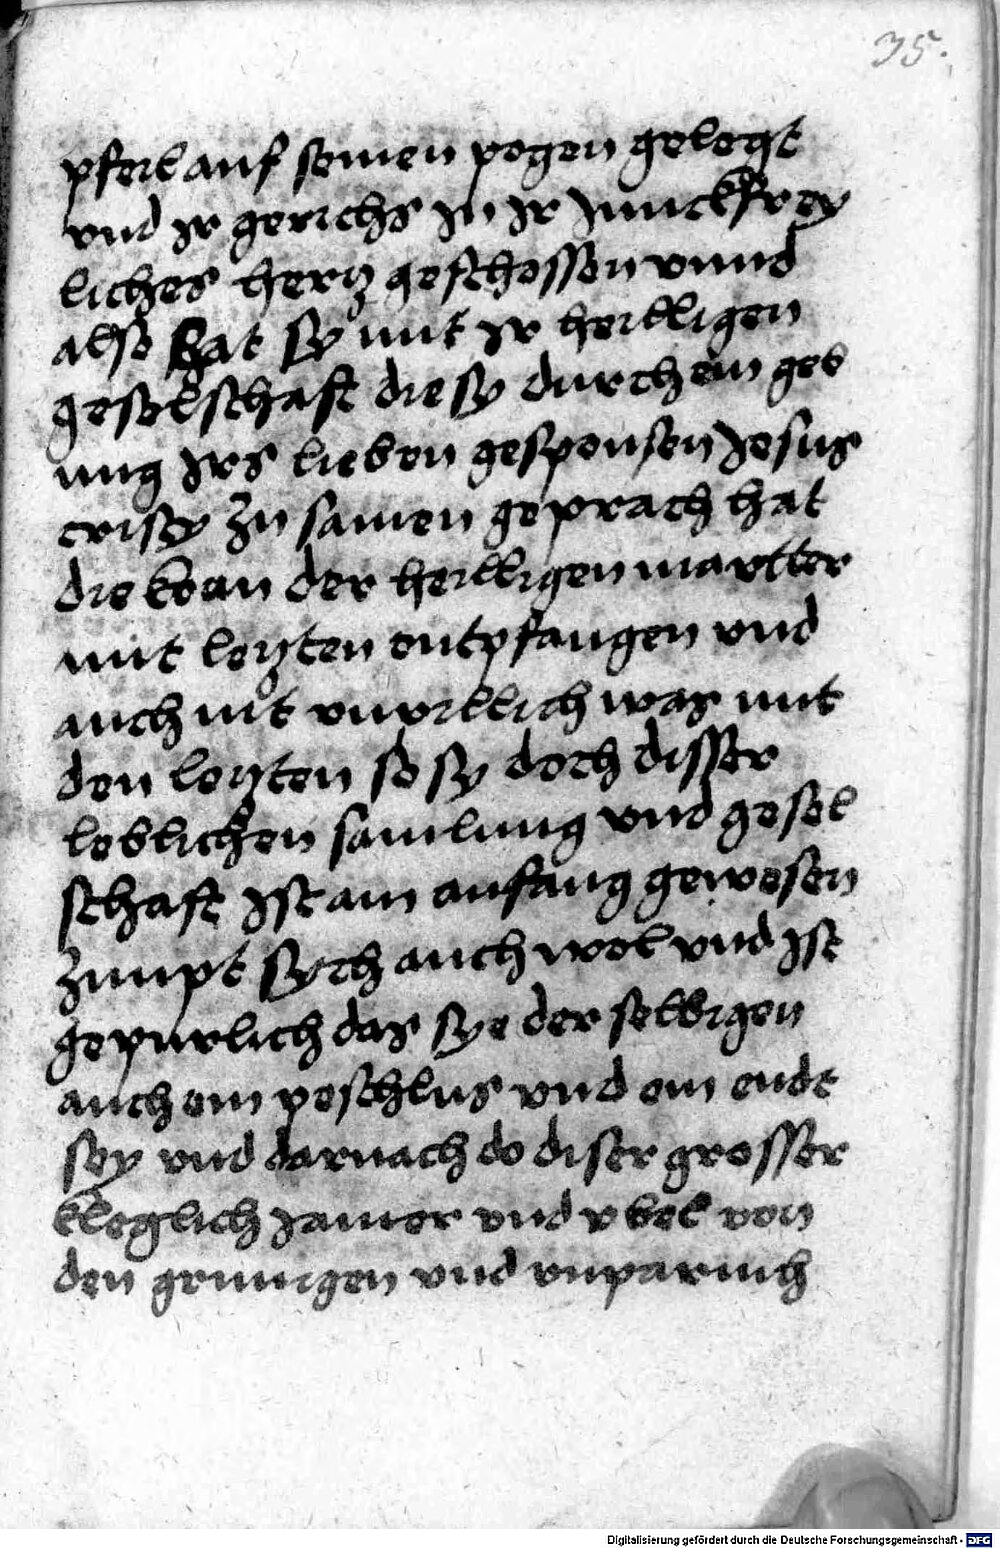 35.
pfeil auf seinen pogen gelegt
vnd ir gerichs in ir iunckfrey
liches hertz geschossen vnnd
also hat sy mit ir heilligen
geselschaft die sy durch ein geb
ung irs lieben gesponsen Jesus
cristy zu samen geprach hat
die kran der heilligen martter
mit letzten entpfangen vnd
auch nit vnpillich was mit
den letzten so sy doch disser
loblichen samlung vnd gesel
schaft ist ain anfang gewesen
zimpt sych auch wol vnd ist
gepurlich das sye der selbigen
auch ein peschlus vnd ein endt
sey vnd darnach do diser grosser
kleglich jamer vnd vbel von
den grimigen vnd vnparmh
Digitalisierung gefördert durch die Deutsche Forschungsgemeinschaft - DFG